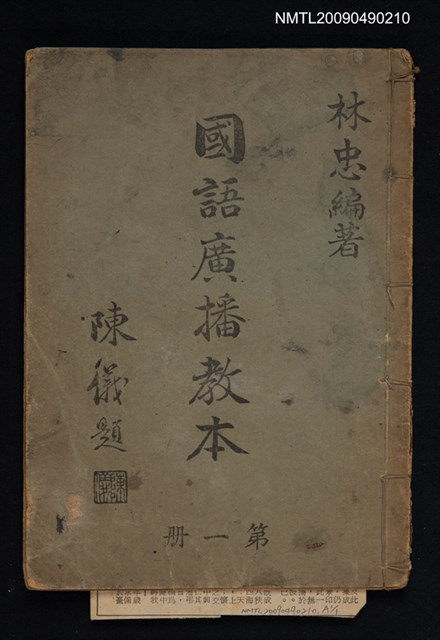 NMTL20090490210
林忠編著
國語廣播教本
陳儀題
第一冊
NMTL20090490210_A/1